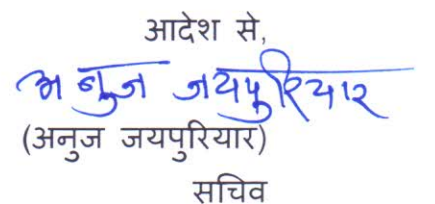 आदेश से,
अनुज जयपुरियार
(अनुज जयपुरियार)
सचिव